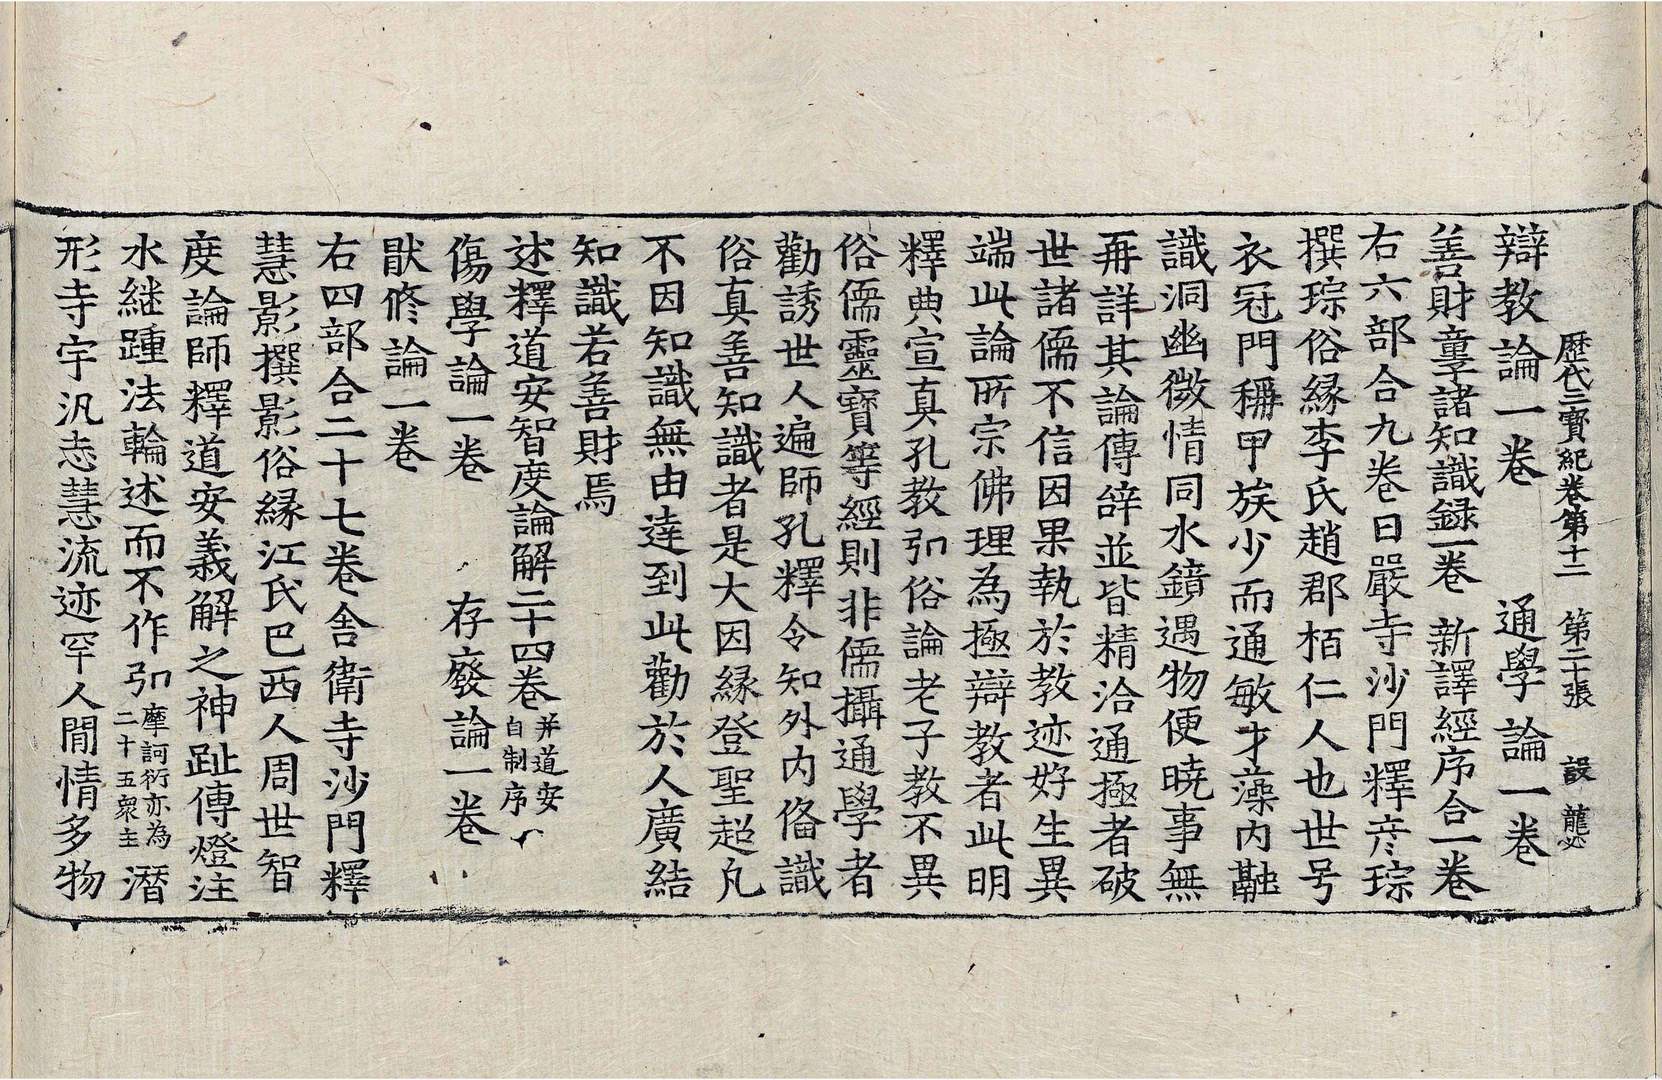 歷代三寶紀卷第十二 第二十張 設 龍必
辯教論一卷 通學論一卷
善財童子諸知識録一卷 新譯經序合一卷
右六部合九卷日嚴寺沙門釋彦琮
撰琮俗緣李氏趙郡栢仁人也世号
衣冠門稱甲族少而通敏才藻內融
識洞幽微情同水鏡遇物便曉事無
再詳其論傳辝並皆精洽通極者破
世諸儒不信因果執於教迹好生異
端此論所宗佛理為極辯教者此明
釋典宣真孔教弘俗論老子教不異
俗儒靈寶等經則非儒攝通學者
勸誘世人遍師孔釋令知外內俻識
俗真善知識者是大因緣登聖超凡
不因知識無由達到此勸於人廣結
知識若善財焉
述釋道安智度論解二十四卷 并道安自制序
傷學論一卷 存廢論一卷
猒修論一卷
右四部合二十七卷舍衛寺沙門釋
慧影撰影俗緣江氏巴西人周世智
度論師釋道安義解之神趾傳燈注
水継踵法輪述而不作弘 摩訶衍亦為二十五衆主 潛
形寺宇汎志慧流迹罕人間情多物